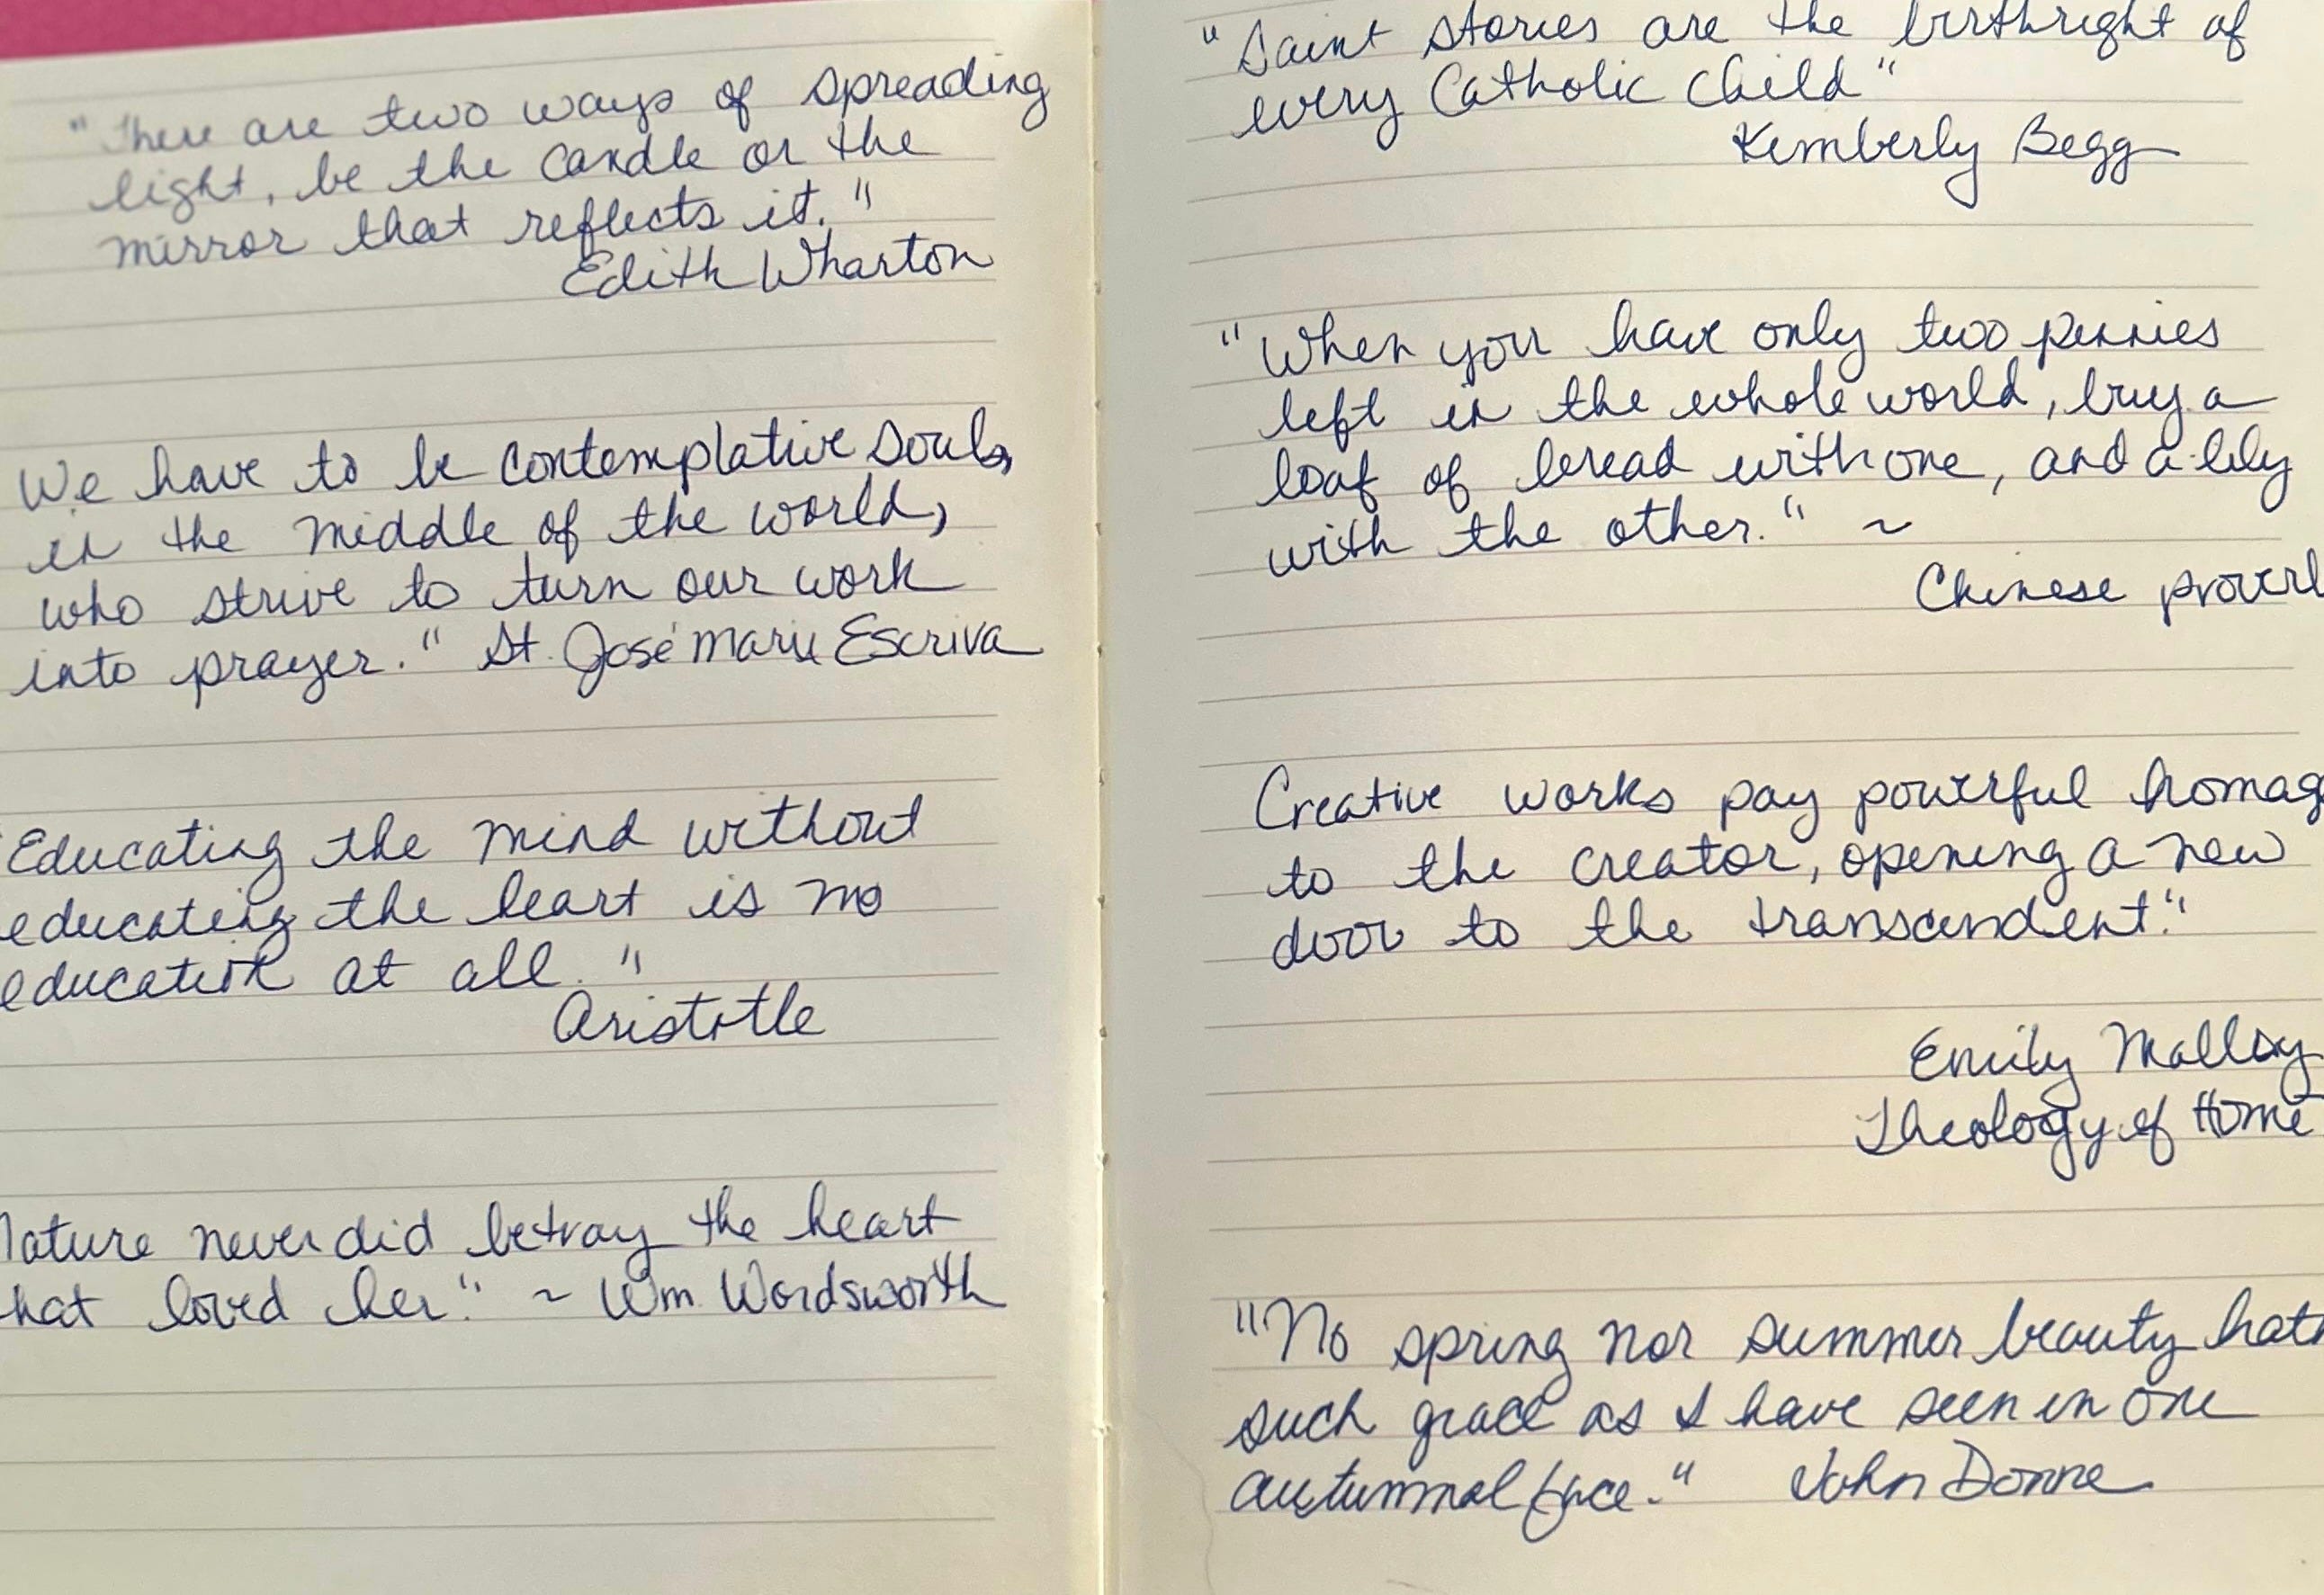 "There are two ways of spreading
light, be the candle or the
mirror that reflects it."
Edith Wharton
We have to be contemplative souls,
in the middle of the world,
who strive to turn our work
into prayer." St. José Marie Escriva
"Educating the mind without
educating the heart is no
education at all."
Aristotle
Nature never did betray the heart
that loved her." ~ Wm. Wordsworth
"Saint stories are the birthright of
every Catholic child"
Kimberly Begg
"When you have only two pennies
left in the whole world, buy a
loaf of bread with one, and a lily
with the other." ~
Chinese proverb
Creative works pay powerful homag
to the creator, opening a new
door to the transcendent."
Emily Malloy
Theology of Home
"No spring nor summer beauty hath
such grace as I have seen in one
autumnal face." John Donne